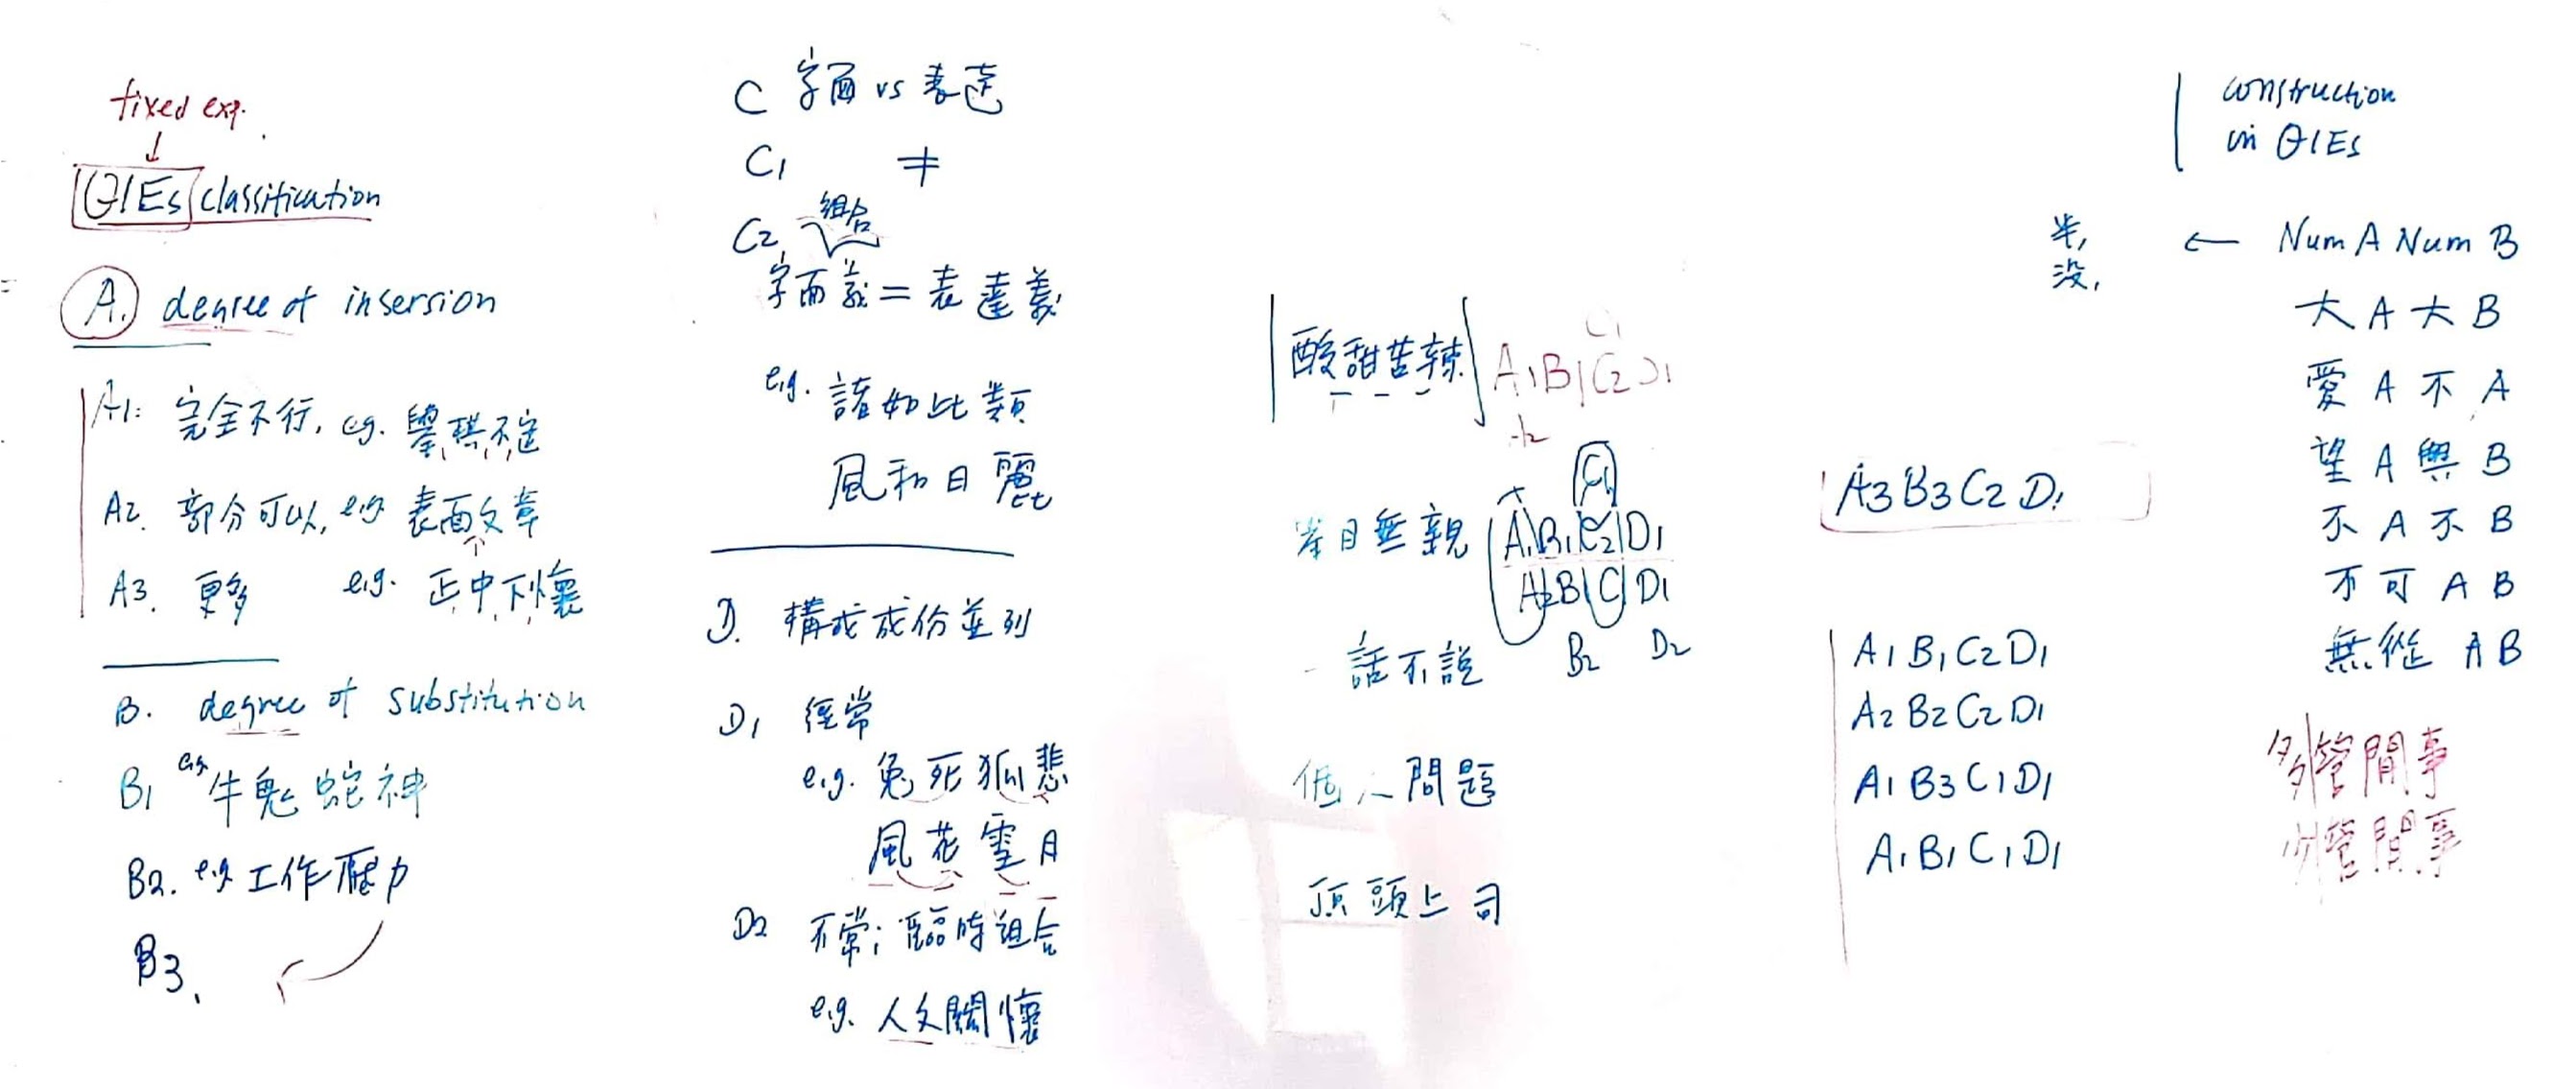 fixed exp.
↓
QIEs classification
A. degree of insersion
A1: 完全不行, eg. 舉棋不定
A2. 部分可以, eg 表面文章
A3. 更多 e.g. 正中下懷
B. degree of substitution
B1 eg 牛鬼蛇神
B2. eg 工作壓力
B3.
C 字面 vs 表達
C1 ≠
C2 組合
字面義 = 表達義
e.g. 諸如此類
風和日麗
D. 構成成份並列
D1 經常
e.g. 兔死狐悲
風花雪月
D2 不常; 臨時組合
e.g. 人文關懷
酸甜苦辣 A1B1C2D1
C1
舉目無親 A1B1C2D1
C1
A2B1C1D1
B2 D2
一話不說
個人問題
頂頭上司
A3B3C2D1
A1B1C2D1
A2B2C2D1
A1B3C1D1
A1B1C1D1
construction
in QIEs
半, ← Num A Num B
沒,
大A大B
愛A不A
望A興B
不A不B
不可AB
無從AB
多管閒事
少管閒事